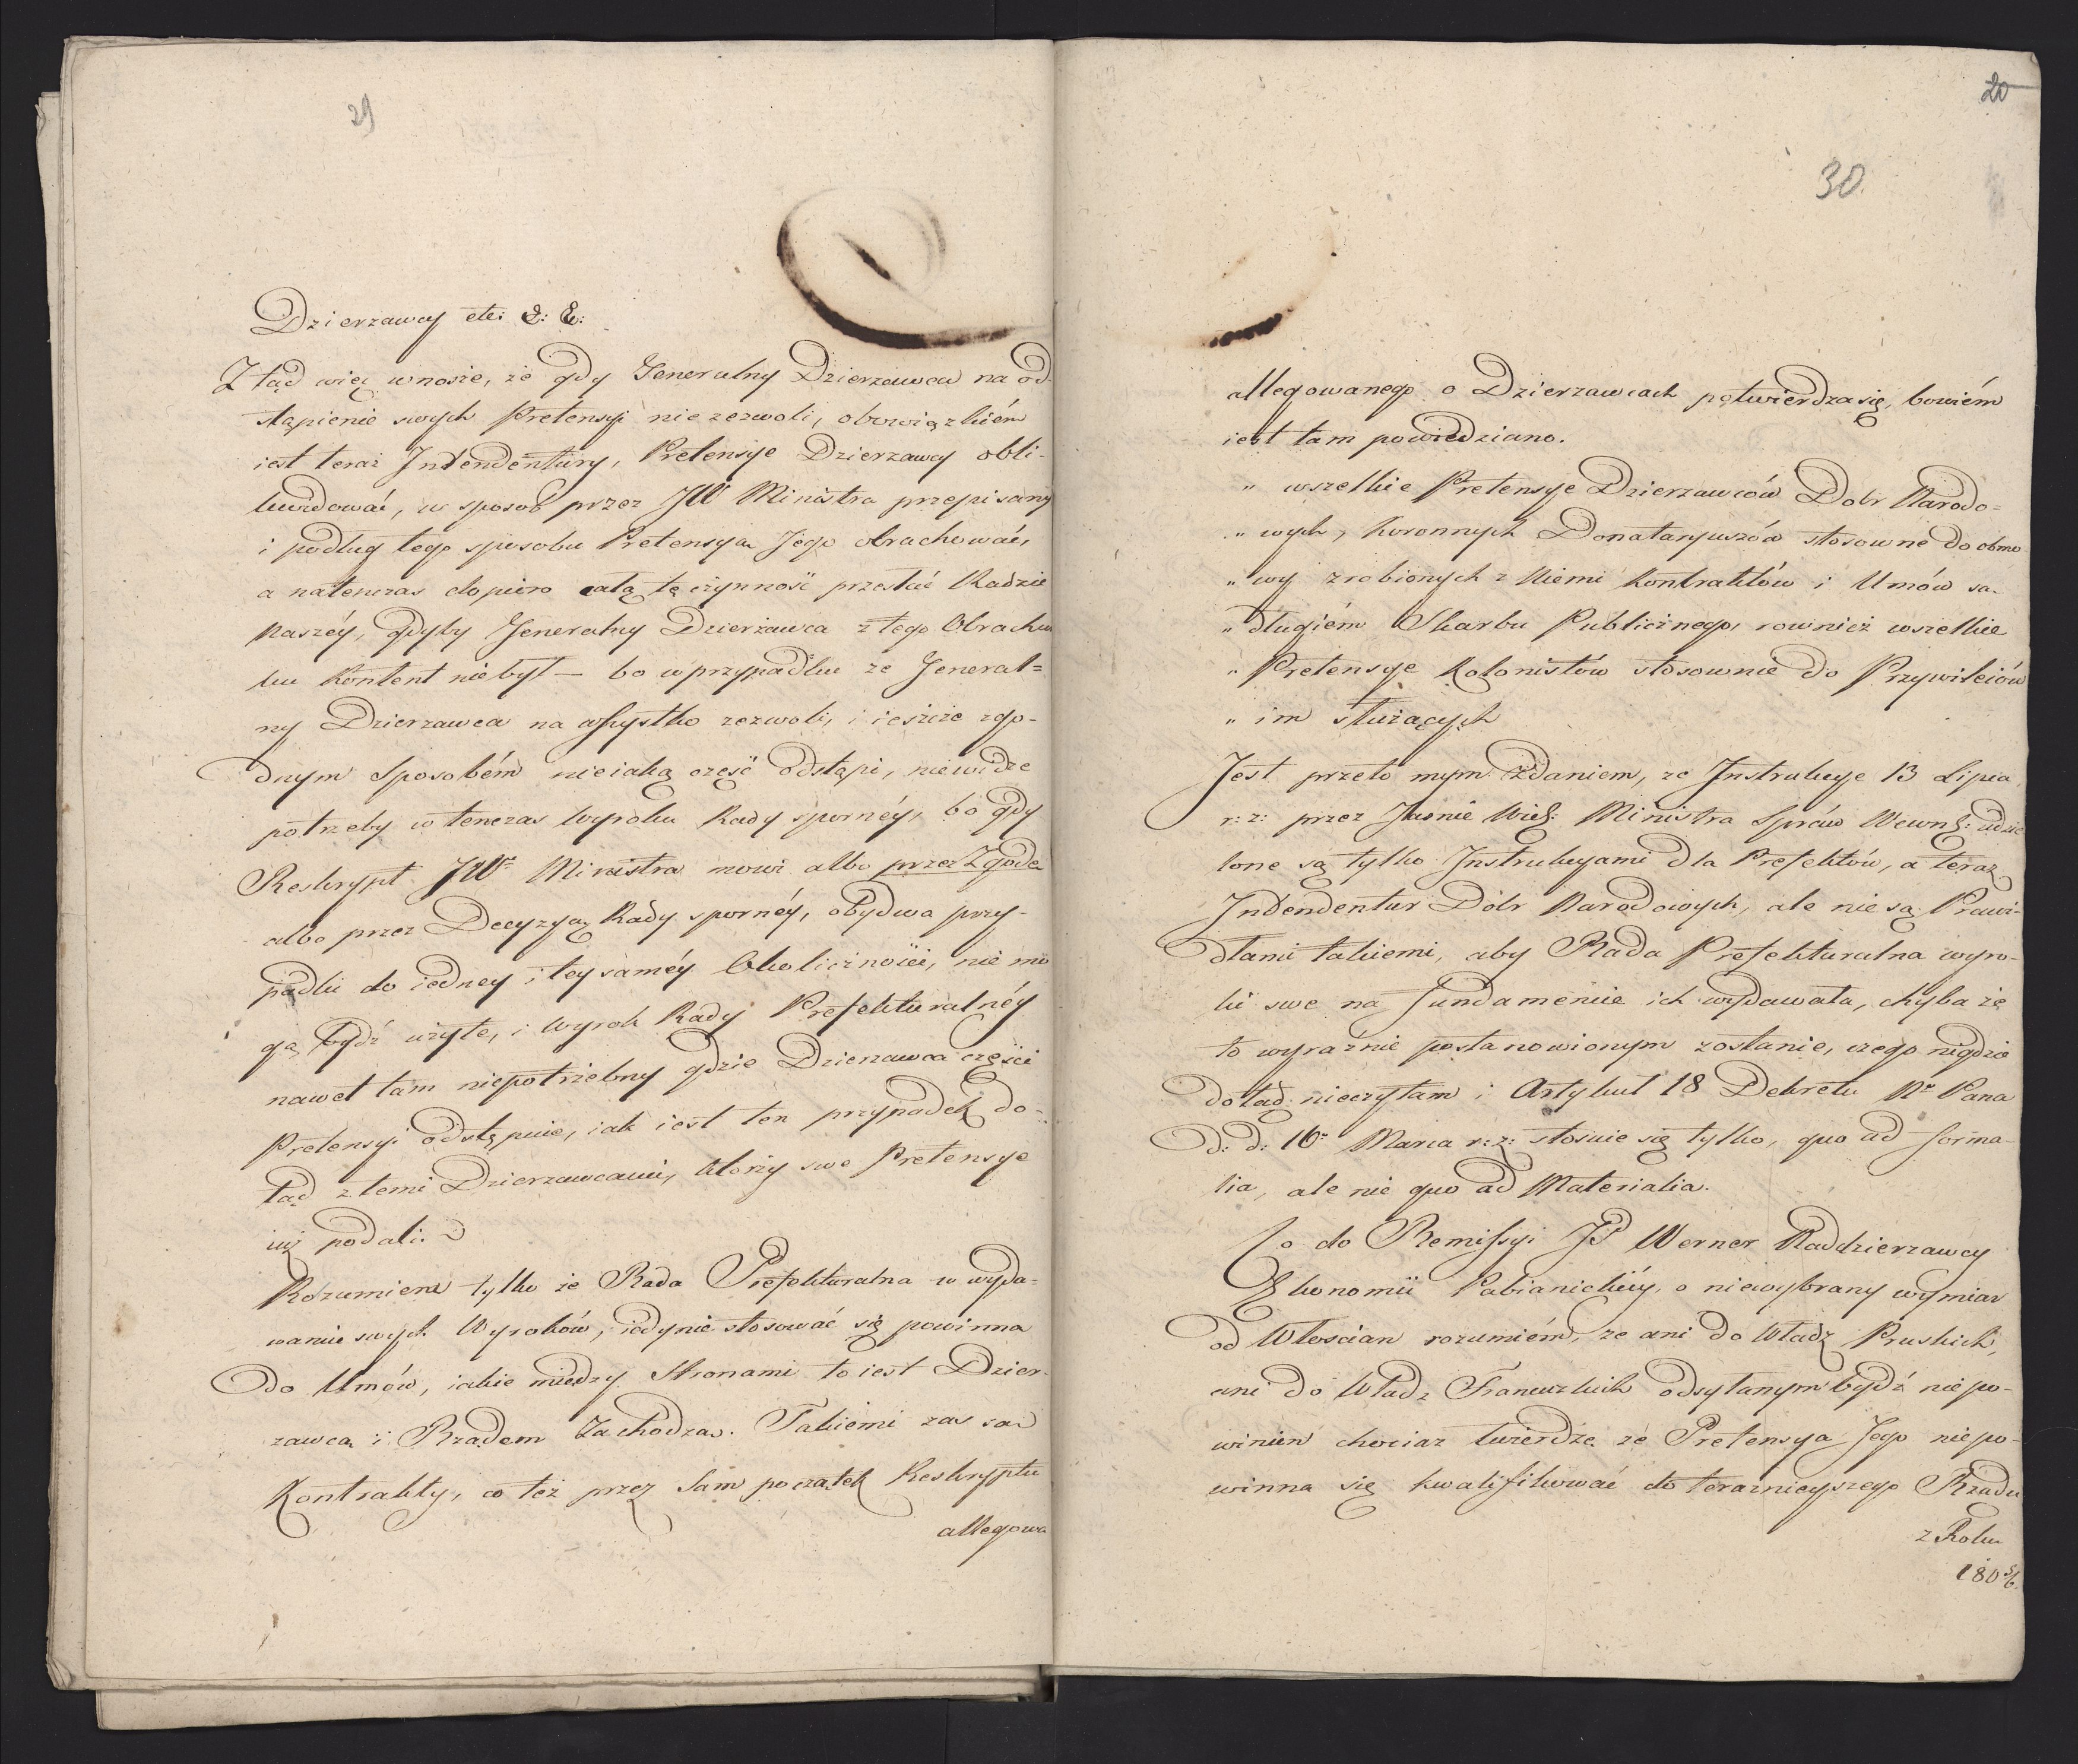 29
Dzierzawcy etc: &: &:
Ztąd więc wnoszę, że gdy Generalny Dzierzawca na od-
stąpienie swych Pretensyi nie zezwoli, obowiązkiém
iest teraz Intendentury, Pretensye Dzierzawcy obli-
kwidować, w sposob przez JW Ministra przepisany
i podług tego sposobu Pretensya Jego obrachować,
a natenczas dopiero całą tę czynność przesłać Radzie
Naszéy, gdyby Generalny Dzierżawca z tego Obrachun
ku kontent niebył — bo w przypadku ze General=
ny Dzierzawca na wszystko zezwoli, i ieszcze zgo-
dnym Sposobém nieiaką część odstąpi, niewidze
potrzeby w tenczas wyroku Rady spornéy, bo gdy
Reskrypt JWo Ministra mowi albo przez Zgodę
albo przez Decyzyą Rady spornéy, obydwa przy-
padki do iedney i teysaméy Okoliczności, nie mo
gą bydź użyte, i wyrok Rady Prefekturalnéy
nawet tam niepotrzebny gdzie Dzierzawca części
Pretensyi odstępuie, iak iest ten przypadek do-
tąd z temi Dzierzawcami, którzy swe Pretensye
iuż podali.
Rozumiem tylko że Rada Prefekturalna w wyda-
waniu swych Wyroków, iedynie stosować się powinna
do Umów, iakie między Stronami to iest Dzier-
zawcą i Rządem Zachodzą. Takiemi zas są
Kontrakty, co też przez Sam początek Reskryptu
allegowa
20
30.
allegowanego o Dzierzawcach potwierdza się, bowiém
iest tam powiedziano.
" wszelkie Pretensye Dzierzawców Dobr Narodo=
" wych, Koronnych Donataryuszów stosowne do obmo
" wy zrobionych z Niemi Kontraktów i Umów są
" długiém Skarbu Publicznego, rownież wszelkie
" Pretensye Kolonistów stosownie do Przywileiów
" im służących
Jest przeto mym zdaniem, ze Instrukcye 13 Lipca
r: z: przez Jasnie Wiel: Ministra Spraw Wewnę: udzie
lone są tylko Instrukcyami dla Prefektów, a teraz
Intendentur Dóbr Narodowych, ale nie są Prawi-
dłami takiemi, aby Rada Prefekturalna wyro-
ki swe na fundamencie ich wydawała, chyba że
to wyraźnie postanowionym zostanie, czego nigdzie
dotąd nieczytam i Artykuł 18 Dekretu No Pana
d: d: 16o Marca r: z: stosuie się tylko, quo ad forma-
lia, ale nie quo ad Materialia.
Co do Remissyi JP Werner Naddzierzawcy
Ekonomii Pabianickiéy, o niewybrany wymiar
od Włoscian rozumiém, ze ani do Władz Pruskich,
ani do Władz Francuzkich odsyłanym bydź niepo-
winien chociaz twierdzę ze Pretensya Jego niepo-
winna się kwalifikować do teraznieyszego Rządu
z Roku
180 5/6.